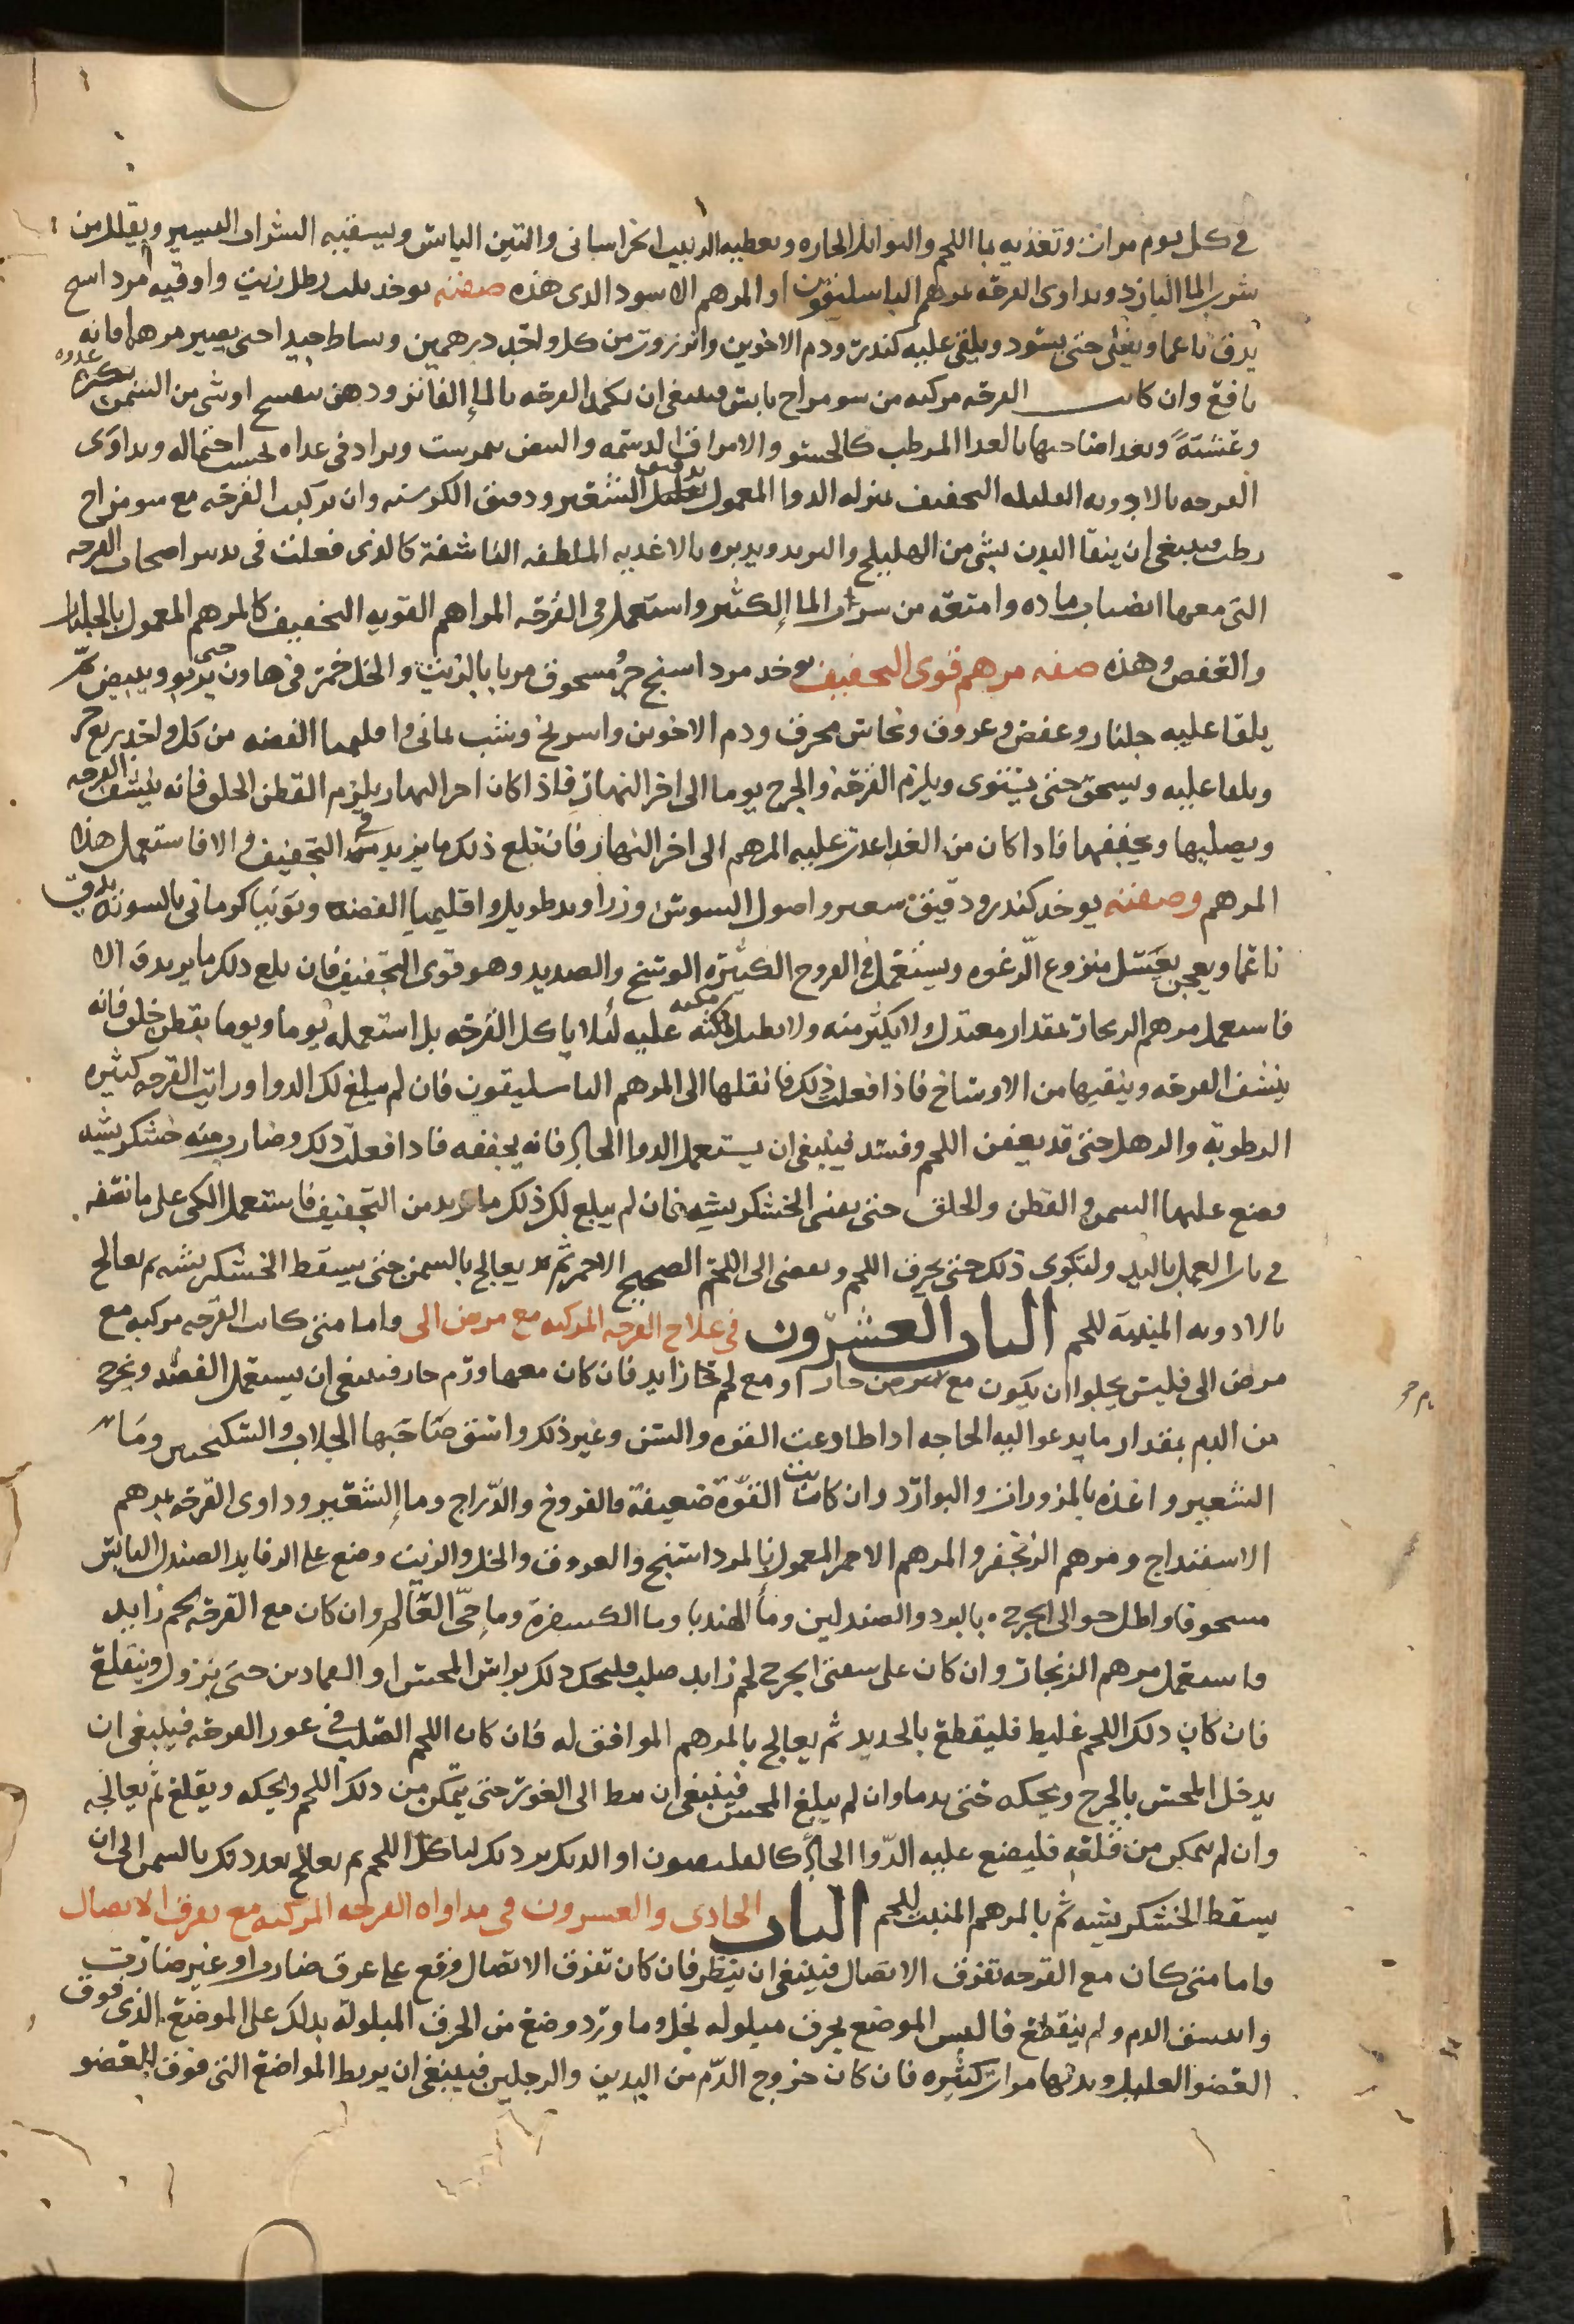 في كل يوم مرات وتغذيه بما اللحم والتوابل الحاره وتعطيه الزبيب الخراساني والتين اليابس ويسقيه الشراب اليسير ويقلل من
شرب الما البارد ويداوي القرحه بمرهم الباسليقون او المرهم الاسود الذي هذه صفته يوخذ ثلث رطل زيت واوقيه مرداسنج
يدق ناعما ويغلى حتى يسود ويلقى عليه كندر ودم الاخوين وانزروت من كل واحد درهمين ويساط جيدا حتى يصير مرهما فانه
نافع وان كانت القرحه مركبه من سو مزاج يابس فينبغي ان تكمد القرحه بالما الفاتر ودهن بنفسج او شي من السمن غدوه
وعشية ويغدا صاحبها بالغدا المرطب كالحسو والامراق الدسمه والبيض نمبرشت ويزاد في غداه بحسب احتماله ويداوى
القرحه بالادويه القليله التجفيف بمنزله الدوا المعمول بدقيق الشعير ودقيق الكرسنه وان تركبت القرحه مع سو مزاج
رطب فينبغي ان ينقا البدن بشي من الهليلج والتربد ويدبره بالاغذيه الملطفه الناشفة كالذي فعلت في تدبير اصحاب القرحه
التي معها انصباب ماده وامنعه من شراب الما الكثير واستعمل في القرحه المراهم القويه التجفيف كالمرهم المعمول بالجلنار
والعفص وهذه صفه مرهم قوي التجفيف يوخذ مرداسنج جزو مسحوق مربا بالزيت والخل خمر في هاون حتى يربو ويبيض ثم
يلقا عليه جلنار وعفص وعروق ونحاس محرق ودم الاخوين واسرنج وشب يماني واقليميا الفضه من كل واحد ربع جز
ويلقا عليه ويسحق حتى يستوى ويلزم القرحه والجرح يوما الى اخر النهار فاذا كان اخر النهار يلزم القطن الخلق فانه ينشف القرحه
ويصلبها ويجففها فاذا كان من الغد اعدت عليه المرهم الى اخر النهار فان بلغ ذلك ما يزيد في التجفيف والا فاستعمل هذا
المرهم وصفته يوخذ كندر ودقيق شعير واصول السوسن وزراوند طويل واقليميا الفضه وتوتيا كرماني بالسويه يدق
ناعما ويعجن بعسل منزوع الرغوه ويستعمل في القروح الكثيره الوسخ والصديد وهو قوي التجفيف فان بلغ ذلك ما يريد والا
فاستعمل مرهم الزنجار بمقدار معتدل ولا يكثر منه ولا تطيل مكثه عليه لئلا ياكل القرحه بل استعمله يوما ويوما بقطن خلق فانه
ينشف القرحه وينقيها من الاوساخ فاذا فعلت ذلك فانقلها الى المرهم الباسليقون فان لم يبلغ لك الدوا ورايت القرحه كثيره
الرطوبة والرهل حتى قد يعفن اللحم وفسد فينبغي ان يستعمل الدوا الحار فانه يجففه فاذا فعلت ذلك وصارت منه خشكريشه
فضع عليها السمن والقطن والخلق حتى يفنى الخشكريشه فان لم يبلغ لك ذلك ما تريد من التجفيف فاستعمل الكي على ما نصفه
في باب العمل باليد ولتكوى ذلك حتى يحرق اللحم ويفضى الى اللحم الصحيح الاحمر ثم يعالج بالسمن حتى يسقط الخشكريشه ثم يعالج
بالادويه المنبتة للحم الباب العشرون في علاج القرحه المركبه مع مرض الى واما متى كانت القرحه مركبه مع
مرض الى فليس يخلوا ان يكون مع مرض حار او مع لحم زايد فان كان معها ورم حار فينبغي ان يستعمل الفصد ويخرج
من الدم بمقدار ما يدعوا اليه الحاجه اذا طاوعت القوه والسن وغير ذلك واسق صاحبها الجلاب والسكنجبين وما
الشعير واغذه بالمزورات والبوارد وان كانت القوة ضعيفة فالفروخ والدراج وما الشعير وداوى القرحه بمرهم
الاسفنداج ومرهم الزنجفر والمرهم الاحمر المعمول بالمرداسنج والعروق والخل والزيت وضع على الرفايد الصندل اليابس
مسحوقا واطل حوالى الجرح بالبرود والصندلين وما الهندبا وما الكسفرة وما حى العالم وان كان مع القرحه لحم زايد
فاستعمل مرهم الزنجار وان كان على سفتى الجرح لحم زايد صلب فليحك ذلك براس المحس او القمادين حتى يزول وينقلع
فان كان ذلك اللحم غليظ فليقطع بالحديد ثم يعالج بالمرهم الموافق له فان كان اللحم الصلب في غور القرحه فينبغي ان
يدخل المحس بالجرح ويحكه حتى يدما وان لم يبلغ المحس فينبغي ان يبط الى الغور حتى يتمكن من ذلك اللحم ويحكه ويقلع ثم يعالجه
وان لم يتمكن من قلعه فليضع عليه الدوا الحار كالفلدفيون او الديك برديك لياكل اللحم ثم يعالج بعد ذلك بالسمن الى ان
يسقط الخشكريشه ثم بالمرهم المنبت للحم الباب الحادى والعشرون في مداواه القرحه المركبه مع تفرق الاتصال
واما متى كان مع القرحه تفرق الاتصال فينبغي ان ينظر فان كان تفرق الاتصال وقع على عرق ضارب او غير ضارب
وانبعث الدم ولم ينقطع فالبس الموضع بخرق مبلوله بخل وما ورد وضع من الخرق المبلولة بذلك على الموضع الذي فوق
العضو العليل وبدلها مرات كثيره فان كان خروج الدم من اليدين والرجلين فينبغي ان يربط المواضع التي فوق العضو